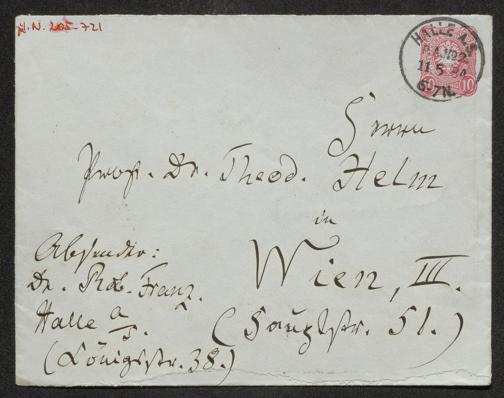 J.N. 205-721
HALLE A.S.
11 5 84
6-7N.
10
Herrn
Prof. Dr. Theod. Helm
in
Wien, III.
(Hauptstr. 51.)
Absender:
Dr. Rob. Franz.
Halle a/S.
(Königsstr. 38.)